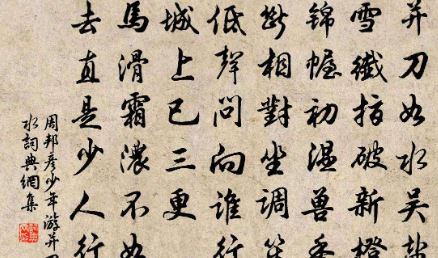 并刀如水吴盐
雪纖指破新橙
錦幄初温兽香
斷相對坐調笙
低聲問向誰行
城上已三更
馬滑霜濃不如
去直是少人行
周邦彦少年游并刀
水詞典網集